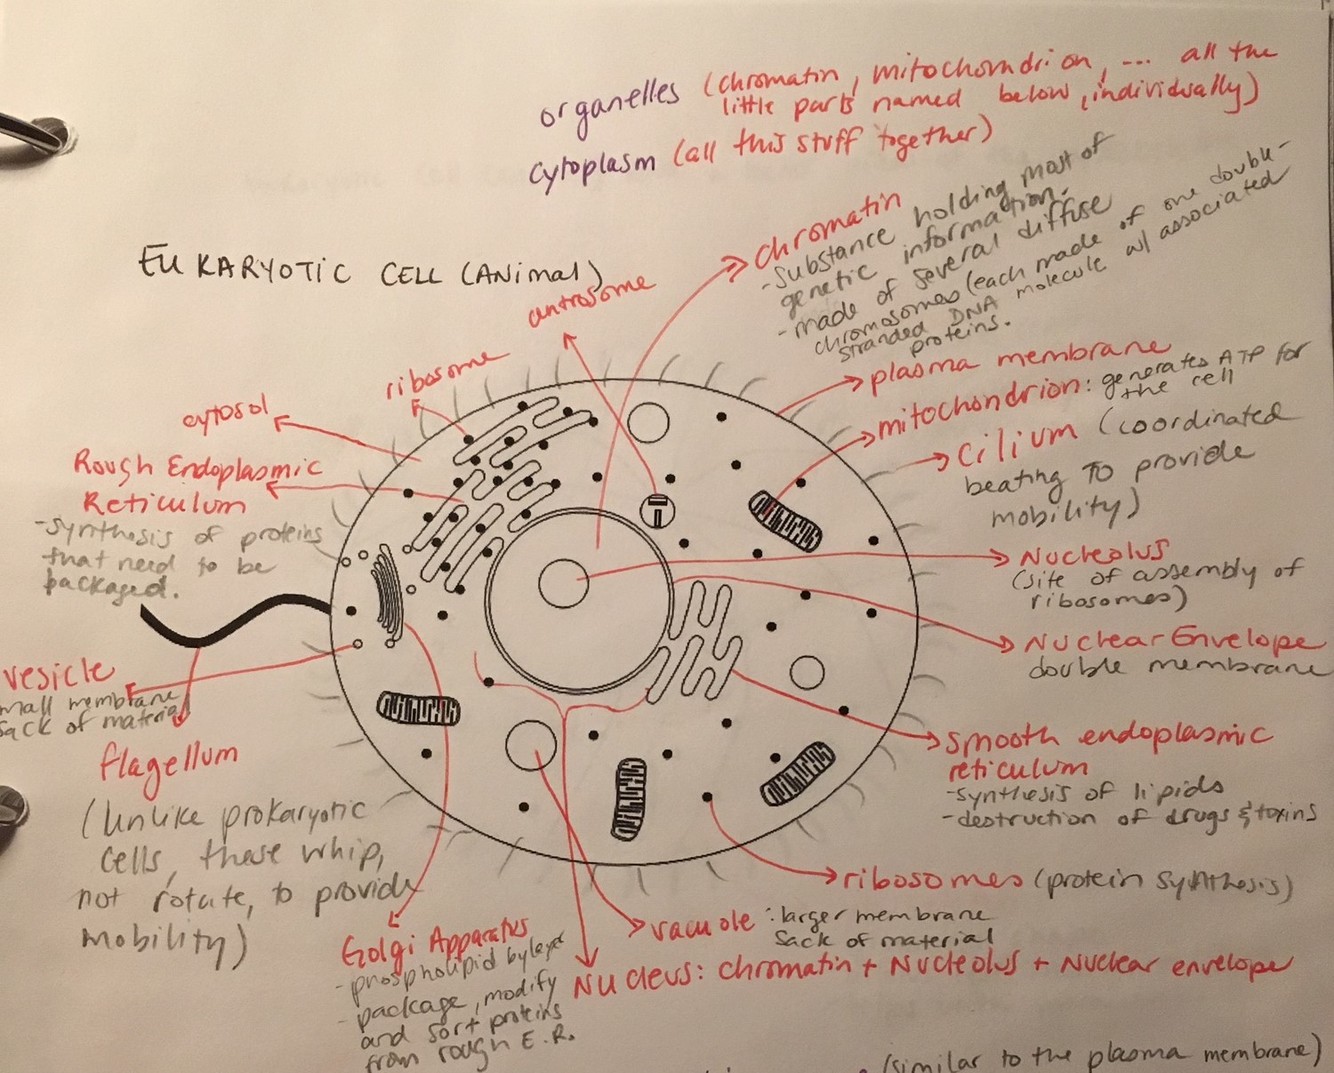 organelles (chromatin, mitochondrion, ... all the
little parts named below, individually)
cytoplasm (all this stuff together)
EUKARYOTIC CELL (ANimal)
chromatin
-substance holding most of
genetic information.
-made of several diffuse
chromosomes (each made of one double-
stranded DNA molecule w/ associated
proteins.
centrosome
ribosome
cytosol
Rough Endoplasmic
Reticulum
-synthesis of proteins
that need to be
packaged.
plasma membrane
mitochondrion: generates ATP for
the cell
Cilium (coordinated
beating TO provide
mobility)
Nucleolus
(site of assembly of
ribosomes)
Nuclear Envelope
double membrane
vesicle
small membrane
sack of material
flagellum
(Unlike prokaryotic
cells, these whip,
not rotate, to provide
mobility)
smooth endoplasmic
reticulum
-synthesis of lipids
-destruction of drugs & toxins
ribosomes (protein synthesis)
vacuole : larger membrane
sack of material
Golgi Apparatus
-phospholipid bylayer
-package, modify
and sort proteins
from rough E.R.
Nucleus: chromatin + Nucleolus + Nuclear envelope
(similar to the plasma membrane)